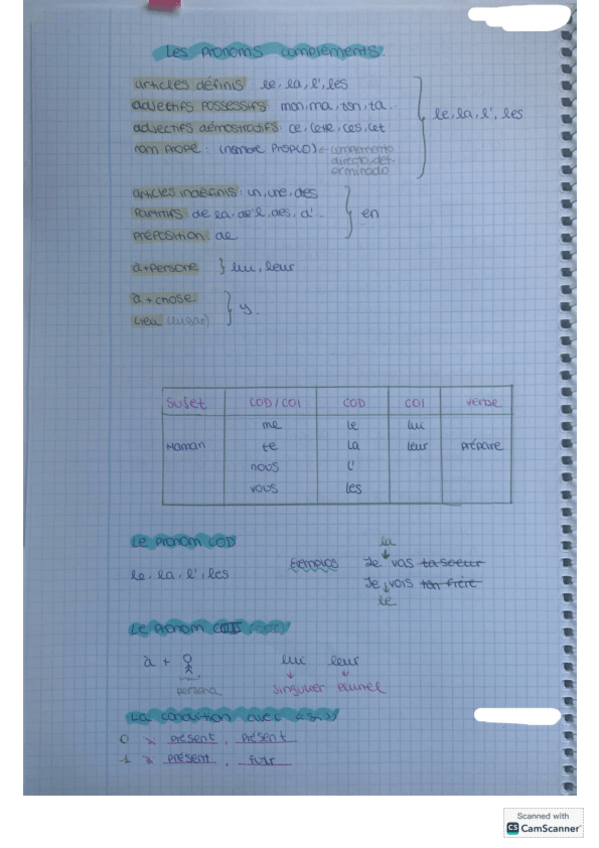 Les pronoms compléments.
articles définis: le, la, l', les
adjectifs possessifs: mon, ma, ton, ta..
adjectifs démostratifs: ce, cette, ces, cet
le, la, l', les
nom propre: (nombre propio) ← complemento
directo det-
erminado
articles indéfinis: un, une, des
partitifs: de la, de l', des, d'...
en
préposition: de
à + persone } lui, leur
à + chose
y.
Lieu (lugar)
Sujet COD/COI COD COI verbe
me le lui
Maman te la leur prépare
nous l'
vous les
Le pronom COD
la
Ejemplos Je vas ta soeur
le, la, l', les
Je vois ton frère
le
Le pronom
à + lui leur
persona singulier pluriel
La condition avec «si»
0 présent, présent
1 présent, futur
Scanned with
CS CamScanner